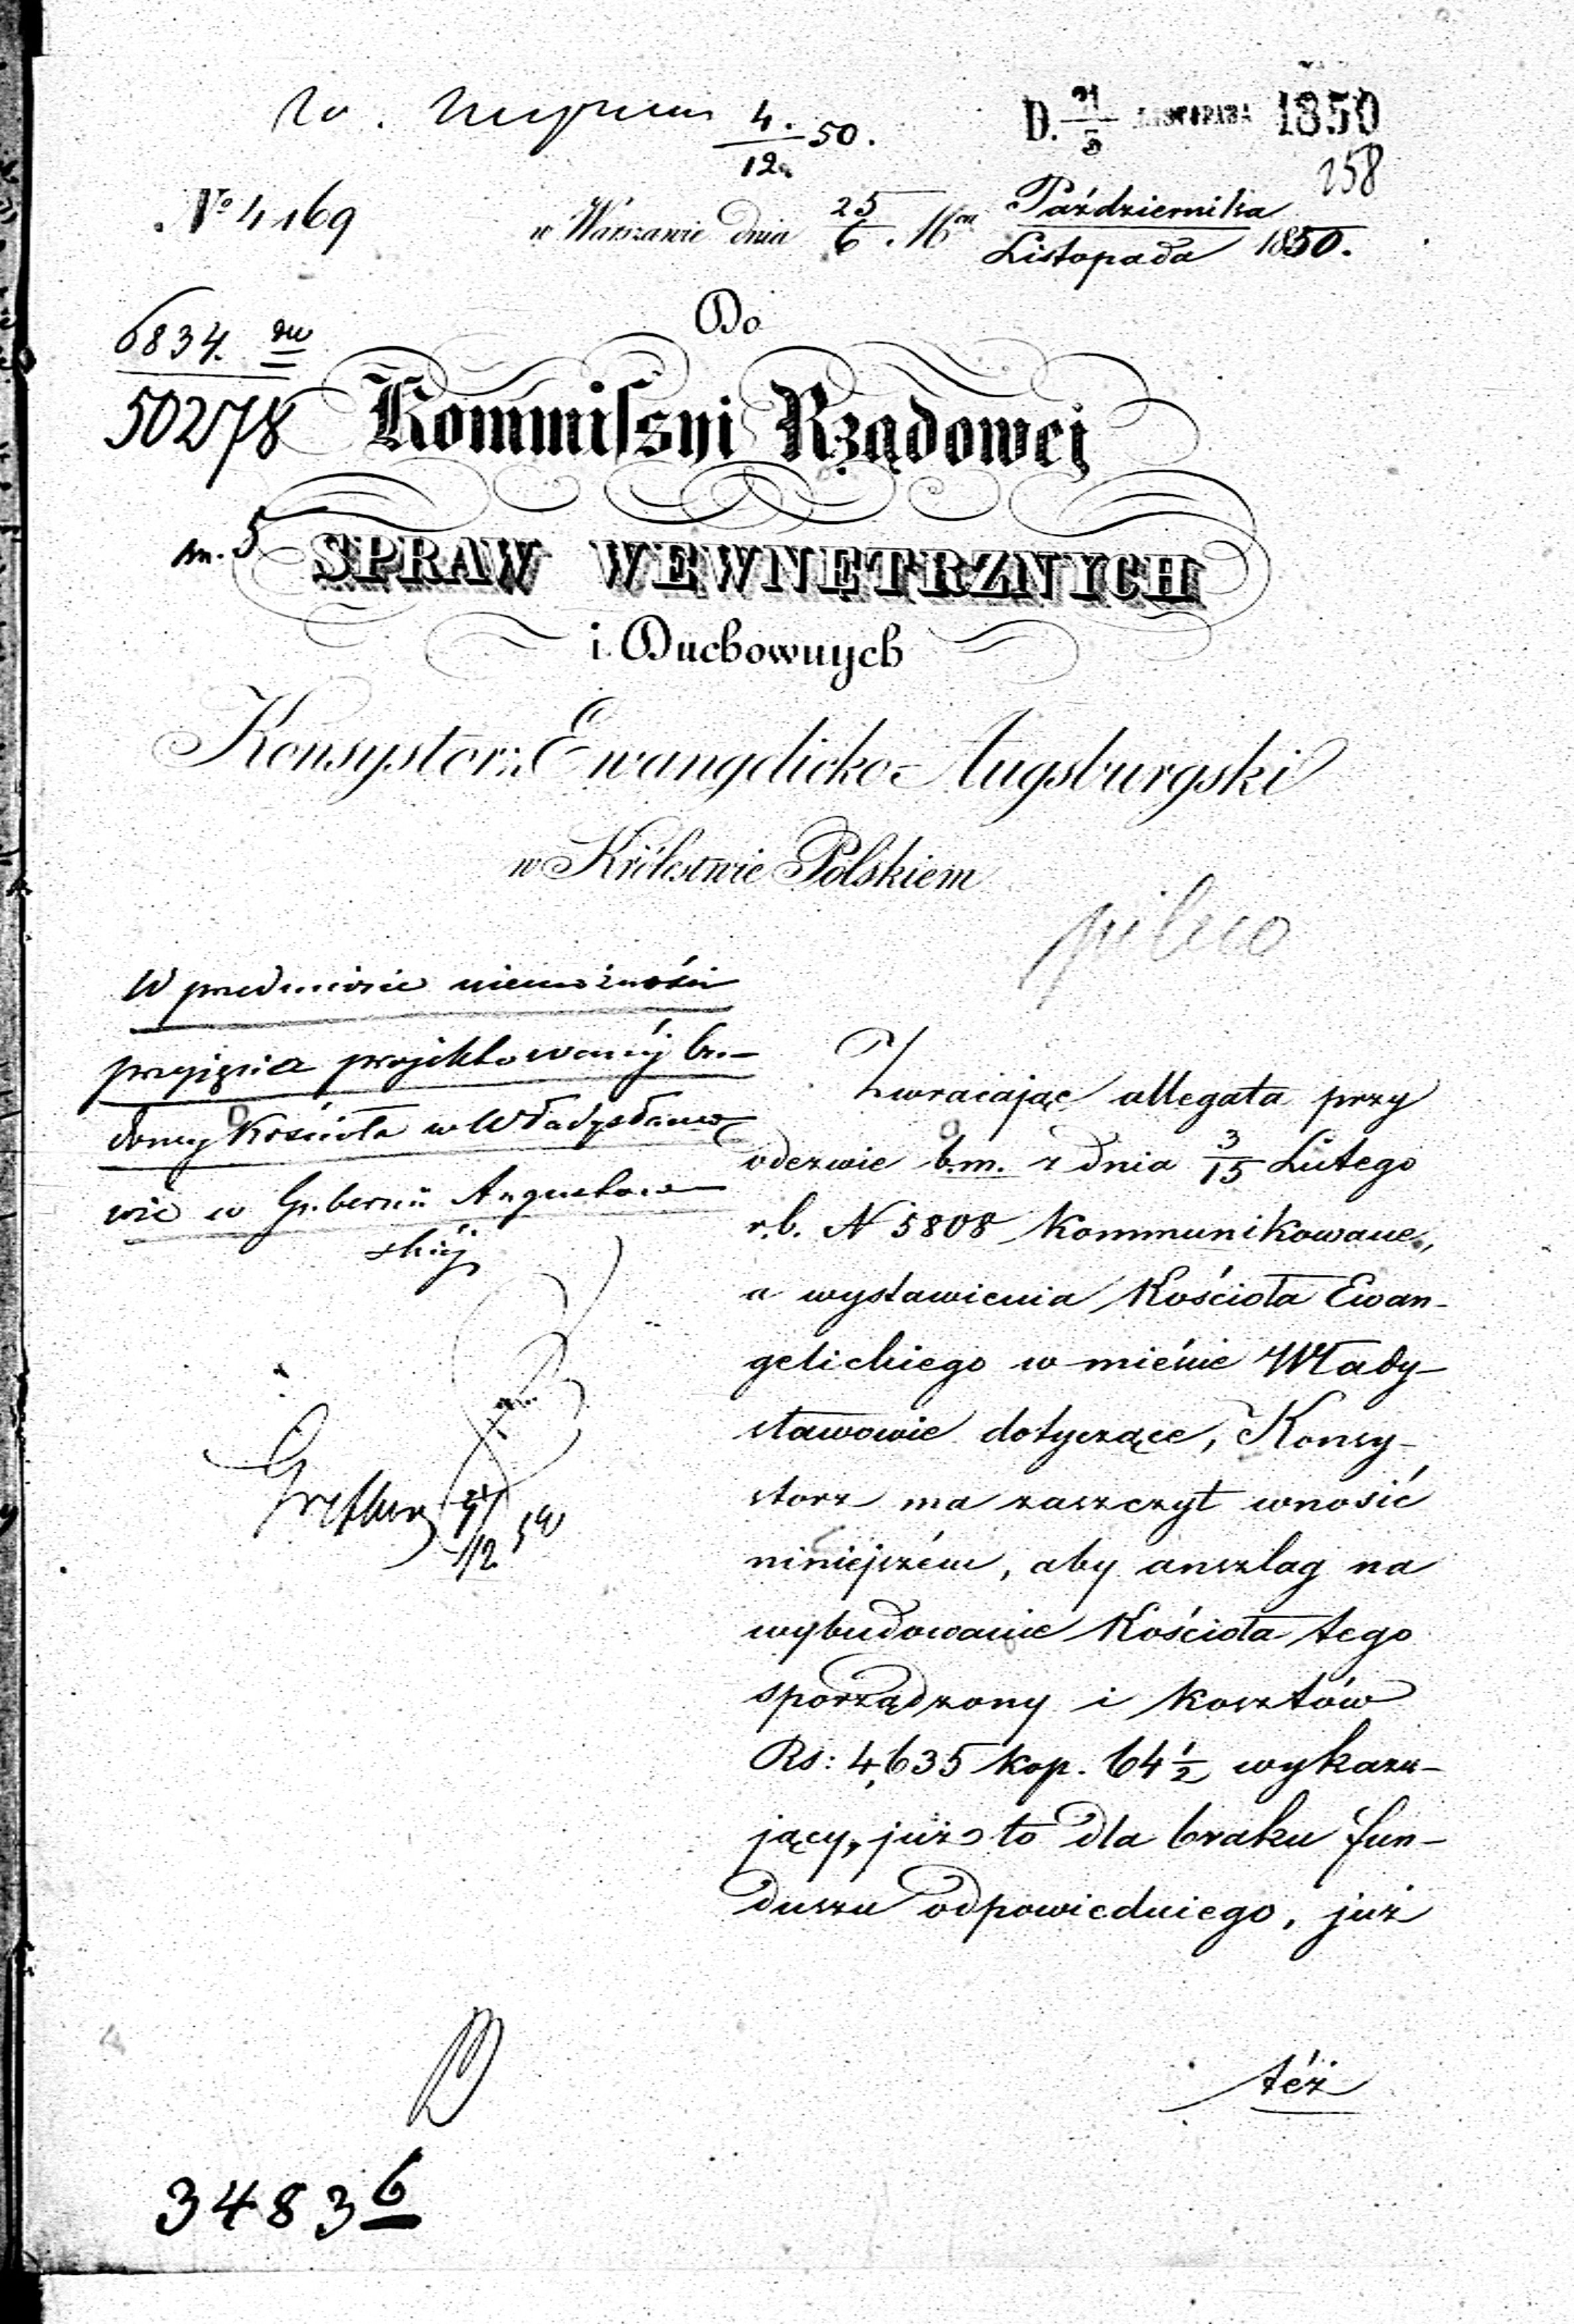 4./12 50.
D. 21/3 LISTOPADA 1850
258
No 4169
w Warszawie dnia 25/6 Mca Października/Listopada 1850.
6834.
50278
Do
Kommissyi Rządowej
SPRAW WEWNĘTRZNYCH
i Duchownych
Konsystorz Ewangelicko-Augsburgski
w Królestwie Polskiem
pilno
W przedmiocie niemożności
przyjęcia projektowanéj bu-
dowy Kościoła w Władysławo
wie w Gubernii Augustow
skiéj
Zwracając allegata przy
odezwie b.m. z dnia 3/15 Lutego
r.b. N 5808 Kommunikowane,
a wystawienia Kościoła Ewan-
gelickiego w mieście Włady-
sławowie dotyczące, Konsy-
storz ma zaszczyt wnosić
niniejszém, aby anszlag na
wybudowanie Kościoła tego
sporządzony i kosztów
Rs: 4,635 kop. 64½ wykazu-
jący, już to dla braku fun-
duszu odpowiedniego, już
téż
34836